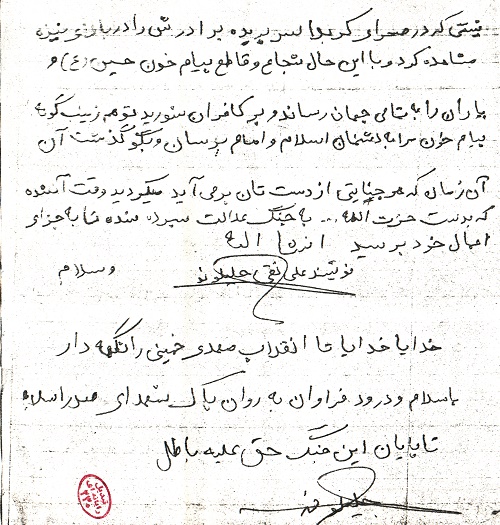 نیستی که در صحرای کربلا سر بریده برادرش را در بالای نیزه
مشاهده کرد و با این حال شجاع و قاطع پیام خون حسین (ع) و
یاران را به تمامی جهان رساند و بر کافران شورید تو هم زینب گونه
پیام خون مرا به دشمنان اسلام و امام برسان و بگو گذشت آن
آن زمان که هر جنایتی از دست تان برمی آید میکردید وقت آنست
که بدست حزب الله ... به چنگ عدالت سپرده شده تا به جزای
اعمال خود برسید انشا الله
علی نقی جلیلوند
والسلام
خدایا خدایا تا انقلاب مهدی خمینی را نگهدار
با سلام و درود فراوان به روان پاک شهدای صدر اسلام
تا پایان این جنگ حق علیه باطل